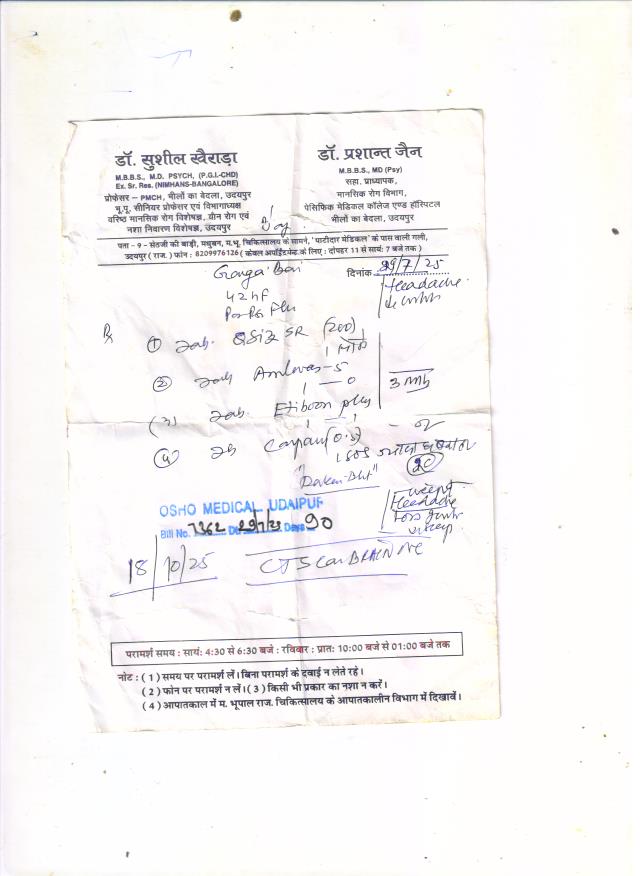 डॉ. सुशील खैराड़ा
M.B.B.S., M.D. PSYCH, (P.G.I.-CHD)
Ex. Sr. Res. (NIMHANS-BANGALORE)
प्रोफेसर – PMCH, भीलों का बेदला, उदयपुर
भू.पू. सीनियर प्रोफेसर एवं विभागाध्यक्ष
वरिष्ठ मानसिक रोग विशेषज्ञ, यौन रोग एवं
नशा निवारण विशेषज्ञ, उदयपुर
डॉ. प्रशान्त जैन
M.B.B.S., MD (Psy)
सहा. प्राध्यापक,
मानसिक रोग विभाग,
पेसिफिक मेडिकल कॉलेज एण्ड हॉस्पिटल
भीलों का बेदला, उदयपुर
पता - 9 - सेठजी की बाड़ी, मधुबन, म.भू. चिकित्सालय के सामने, 'पाटीदार मेडिकल' के पास वाली गली,
उदयपुर ( राज. ) फोन : 8209976126 ( केवल अपॉईंटमेन्ट के लिए : दोपहर 11 से सायं: 7 बजे तक )
Ganga Bai
दिनांक 29/7/25
42 hf
Headache
Rx
(1) Tab. SR (200)
(2) Tab Amlovas-5
1 — 0
3 mth
(3) Tab. Etiboon plus
(4) Tab (0.5)
1 SOS
20
Headache
OSHO MEDICAL UDAIPUR
Bill No. 7362 29/7/25 Days 90
18/10/25
CT Scan BRAIN
परामर्श समय : सायं: 4:30 से 6:30 बजे : रविवार : प्रात: 10:00 बजे से 01:00 बजे तक
नोट : ( 1 ) समय पर परामर्श लें। बिना परामर्श के दवाई न लेते रहे।
( 2 ) फोन पर परामर्श न लें। ( 3 ) किसी भी प्रकार का नशा न करें।
( 4 ) आपातकाल में म. भूपाल राज. चिकित्सालय के आपातकालीन विभाग में दिखावें।